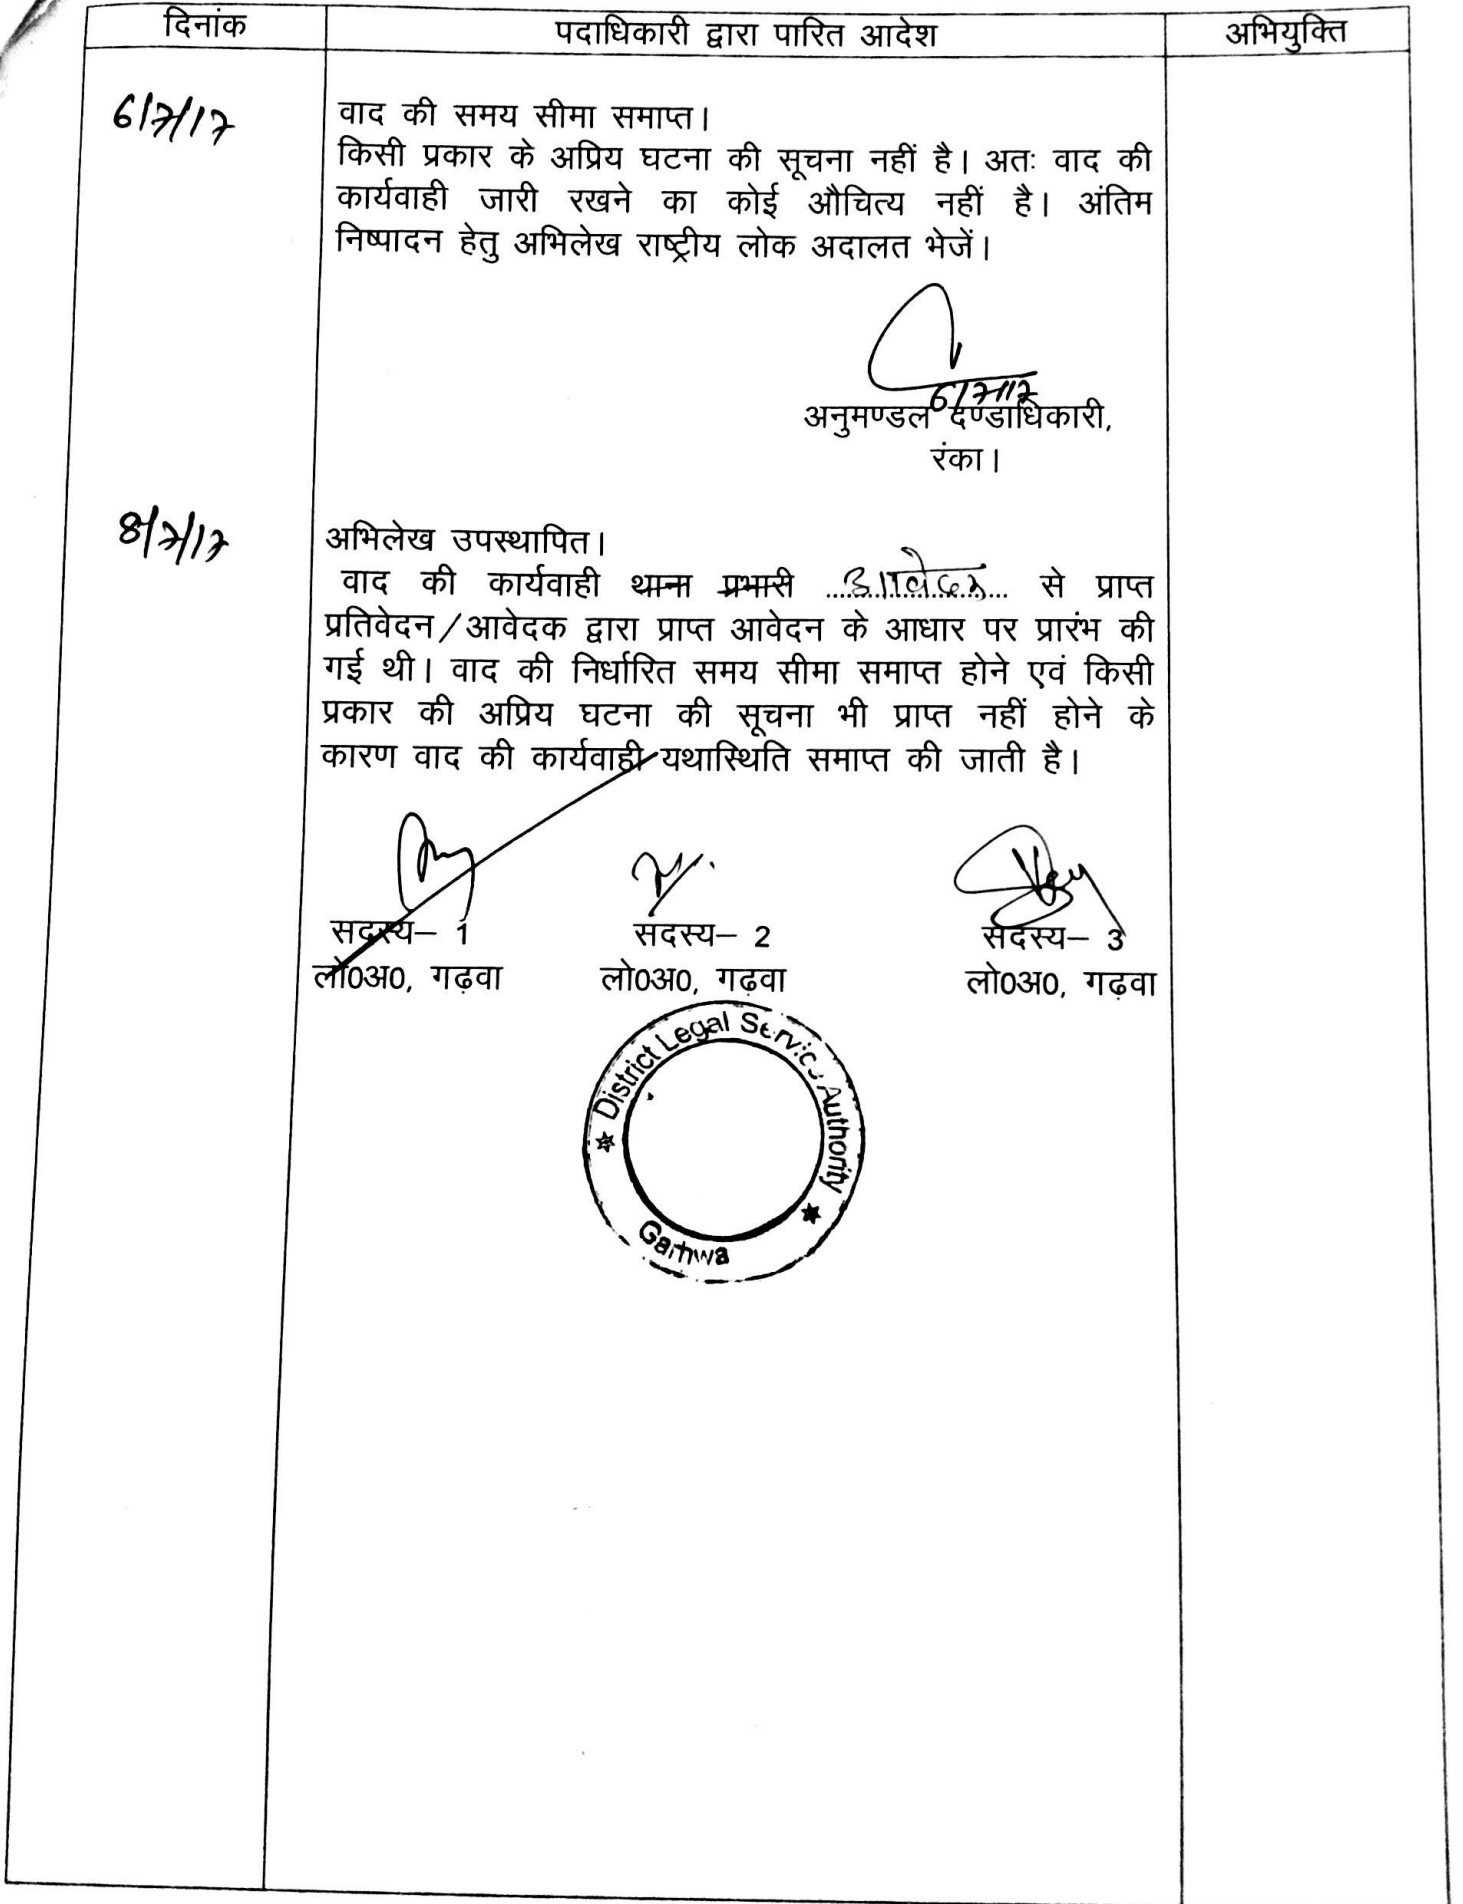 दिनांक पदाधिकारी द्वारा पारित आदेश अभियुक्ति
6/7/17 वाद की समय सीमा समाप्त।
किसी प्रकार के अप्रिय घटना की सूचना नहीं है। अतः वाद की
कार्यवाही जारी रखने का कोई औचित्य नहीं है। अंतिम
निष्पादन हेतु अभिलेख राष्ट्रीय लोक अदालत भेजें।
6/7/17
अनुमण्डल दण्डाधिकारी,
रंका।
8/7/17 अभिलेख उपस्थापित।
वाद की कार्यवाही थाना प्रभारी ...आवेदक... से प्राप्त
प्रतिवेदन/आवेदक द्वारा प्राप्त आवेदन के आधार पर प्रारंभ की
गई थी। वाद की निर्धारित समय सीमा समाप्त होने एवं किसी
प्रकार की अप्रिय घटना की सूचना भी प्राप्त नहीं होने के
कारण वाद की कार्यवाही यथास्थिति समाप्त की जाती है।
सदस्य– 1 सदस्य– 2 सदस्य– 3
लो0अ0, गढ़वा लो0अ0, गढ़वा लो0अ0, गढ़वा
District Legal Service Authority
Garhwa